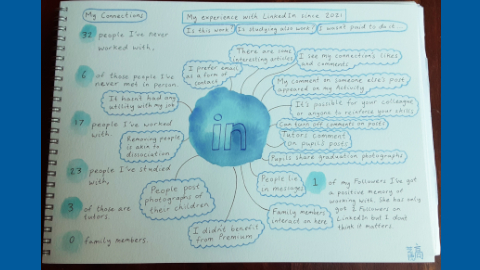 My Connections
32 people I've never
worked with,
6 of those people I've
never met in person.
17 people I've worked
with.
23 people I've studied
with,
3 of those are
tutors.
0 family members.
My experience with LinkedIn since 2021
Is this work? Is studying also work? I wasn't paid to do it...
There are some
interesting articles
I see my connection's likes
and comments
I prefer email
as a form of
contact
My comment on someone else's post
appeared on my Activity
It hasn't had any
utility with my job
It's possible for your colleague
or anyone to reinforce your skills
Can turn off comments on posts
in
Tutors comment
on pupil's posts
Removing people
is akin to
dissociation
Pupils share graduation photographs
People lie
in messages
People post
photographs of
their children
Family members
interest on here
I didn't benefit
from Premium
1 of my Followers I've got
a positive memory of
working with. She has only
got 2 Followers on
LinkedIn but I don't
think it matters.